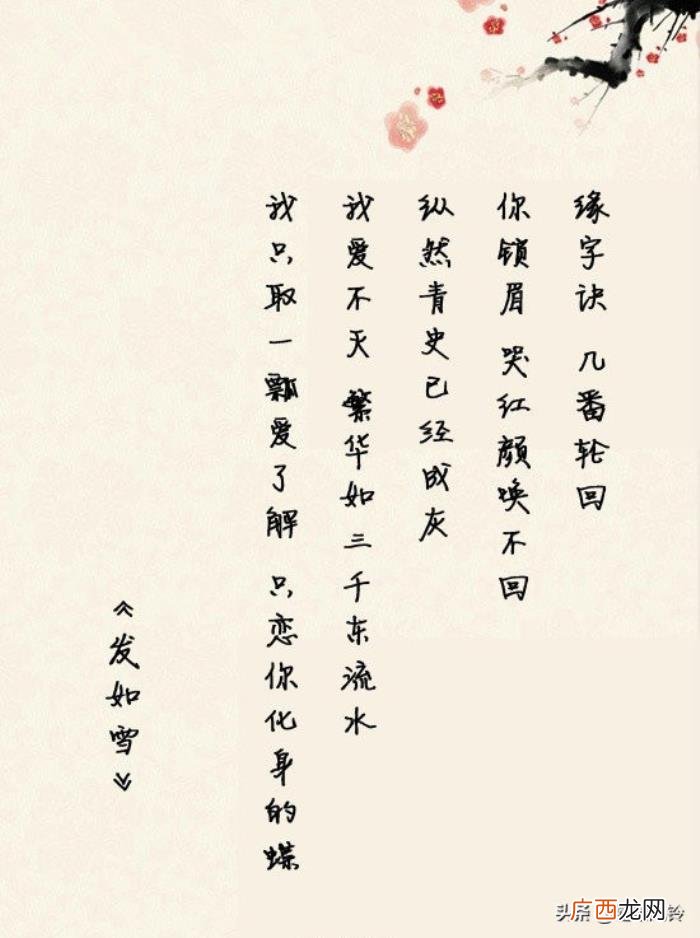 缘字诀 几番轮回
你锁眉 哭红颜唤不回
纵然青史已经成灰
我爱不灭 繁华如三千东流水
我只取一瓢爱了解 只恋你化身的蝶
《发如雪》
头条
广西龙网